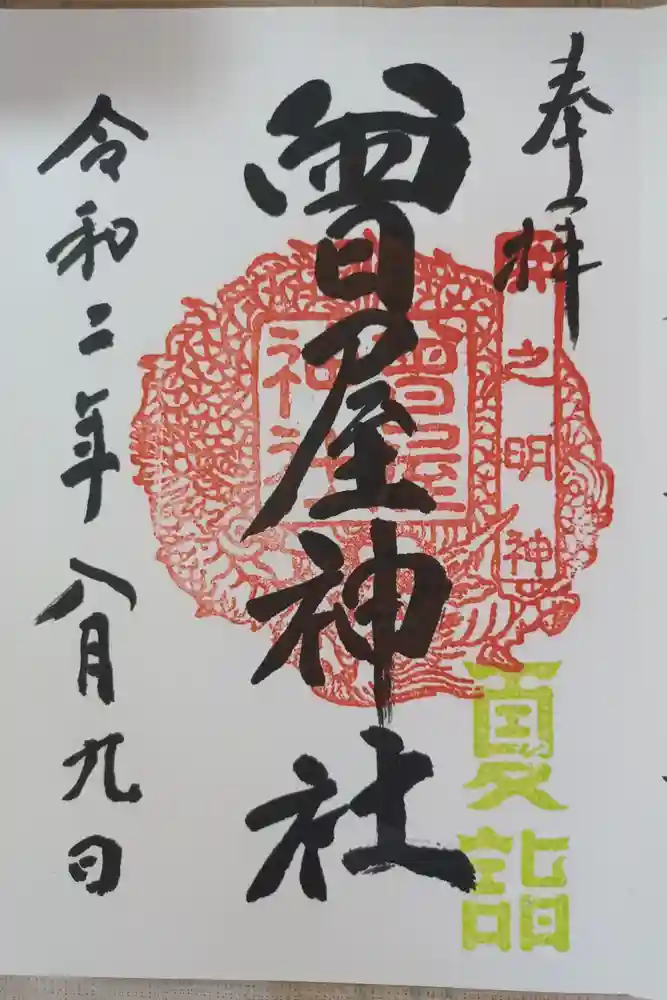 奉拝
之明神
夏詣
曾屋神社
曾屋
神社
令和二年八月九日